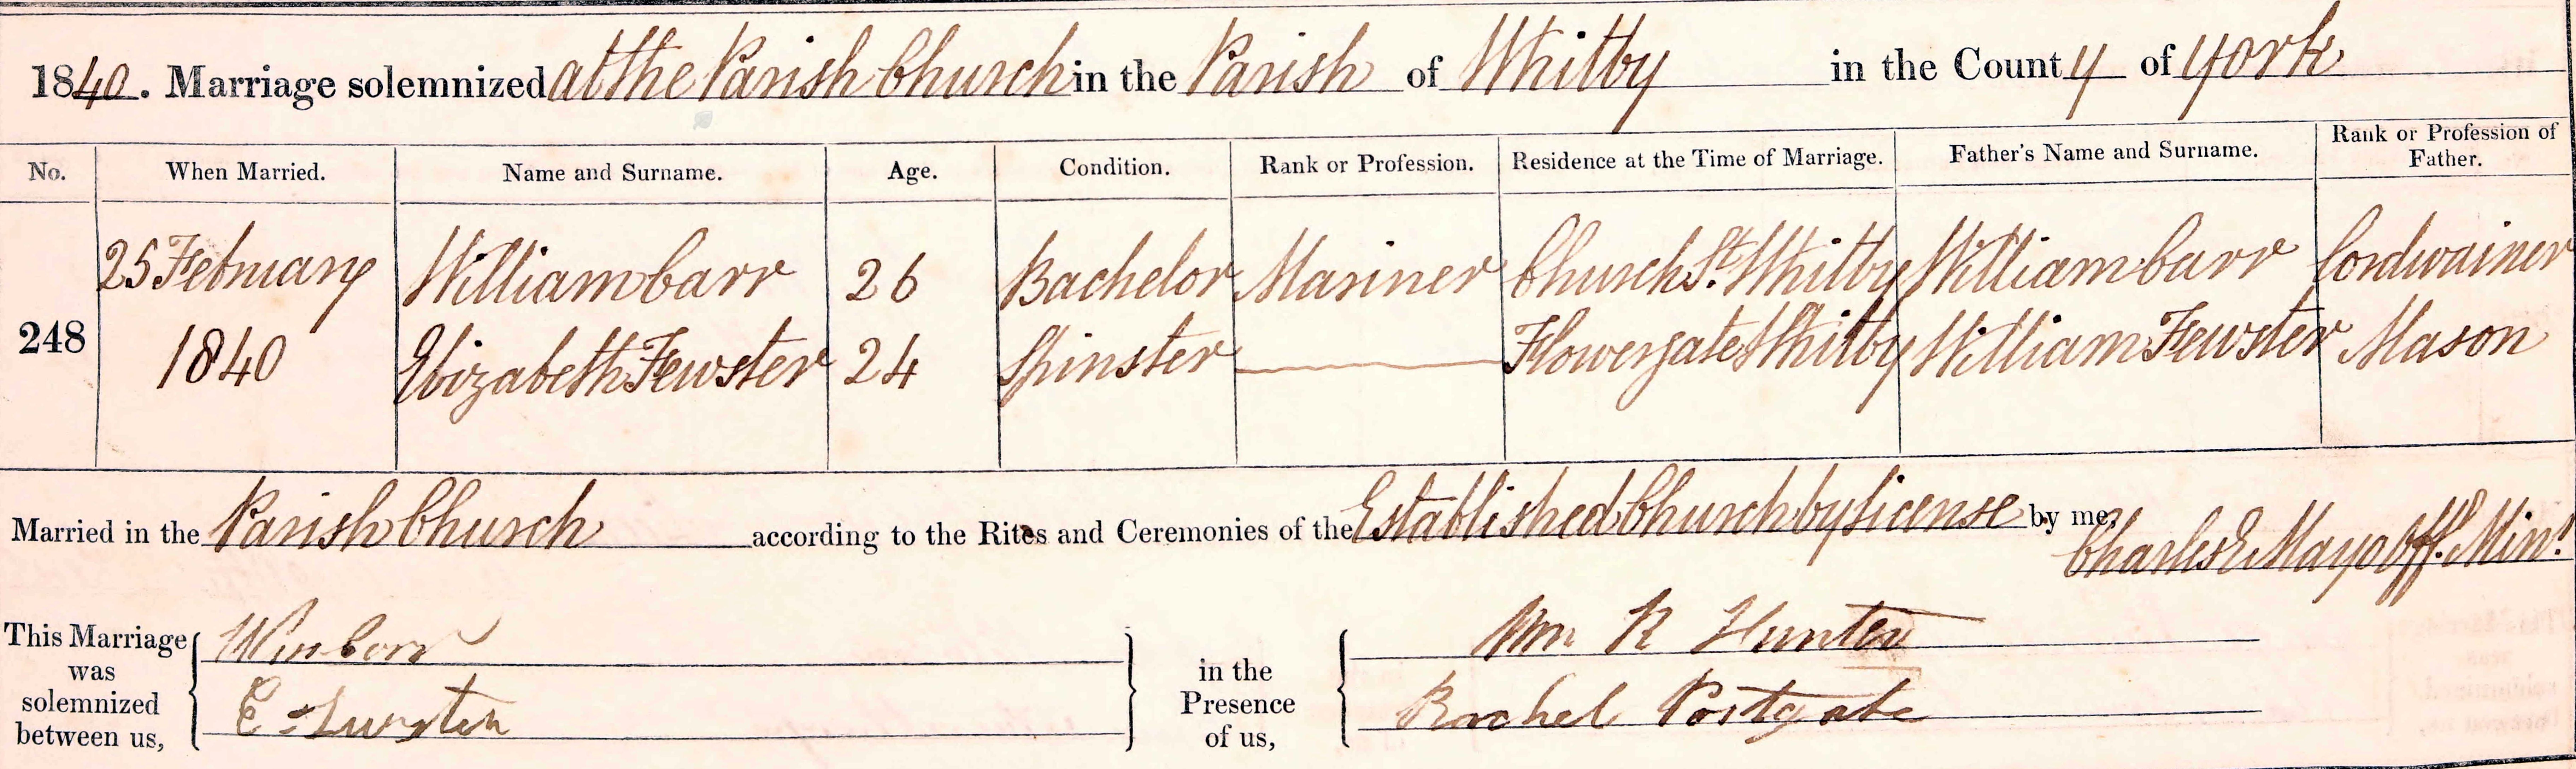 1840. Marriage solemnized at the Parish Church in the Parish of Whitby in the County of York
No. When Married. Name and Surname. Age. Condition. Rank or Profession. Residence at the Time of Marriage. Father's Name and Surname. Rank or Profession of Father.
25 February William Carr 26 Bachelor Mariner Church St. Whitby William Carr Cordwainer
248 1840 Elizabeth Fewster 24 Spinster Flowergate Whitby William Fewster Mason
Married in the Parish Church according to the Rites and Ceremonies of the Established Church by license by me,
Charles E Mayo Offg. Minr.
This Marriage was solemnized between us,
Wm Carr
E Fewster
in the Presence of us,
Wm R Hunter
Rachel Postgate